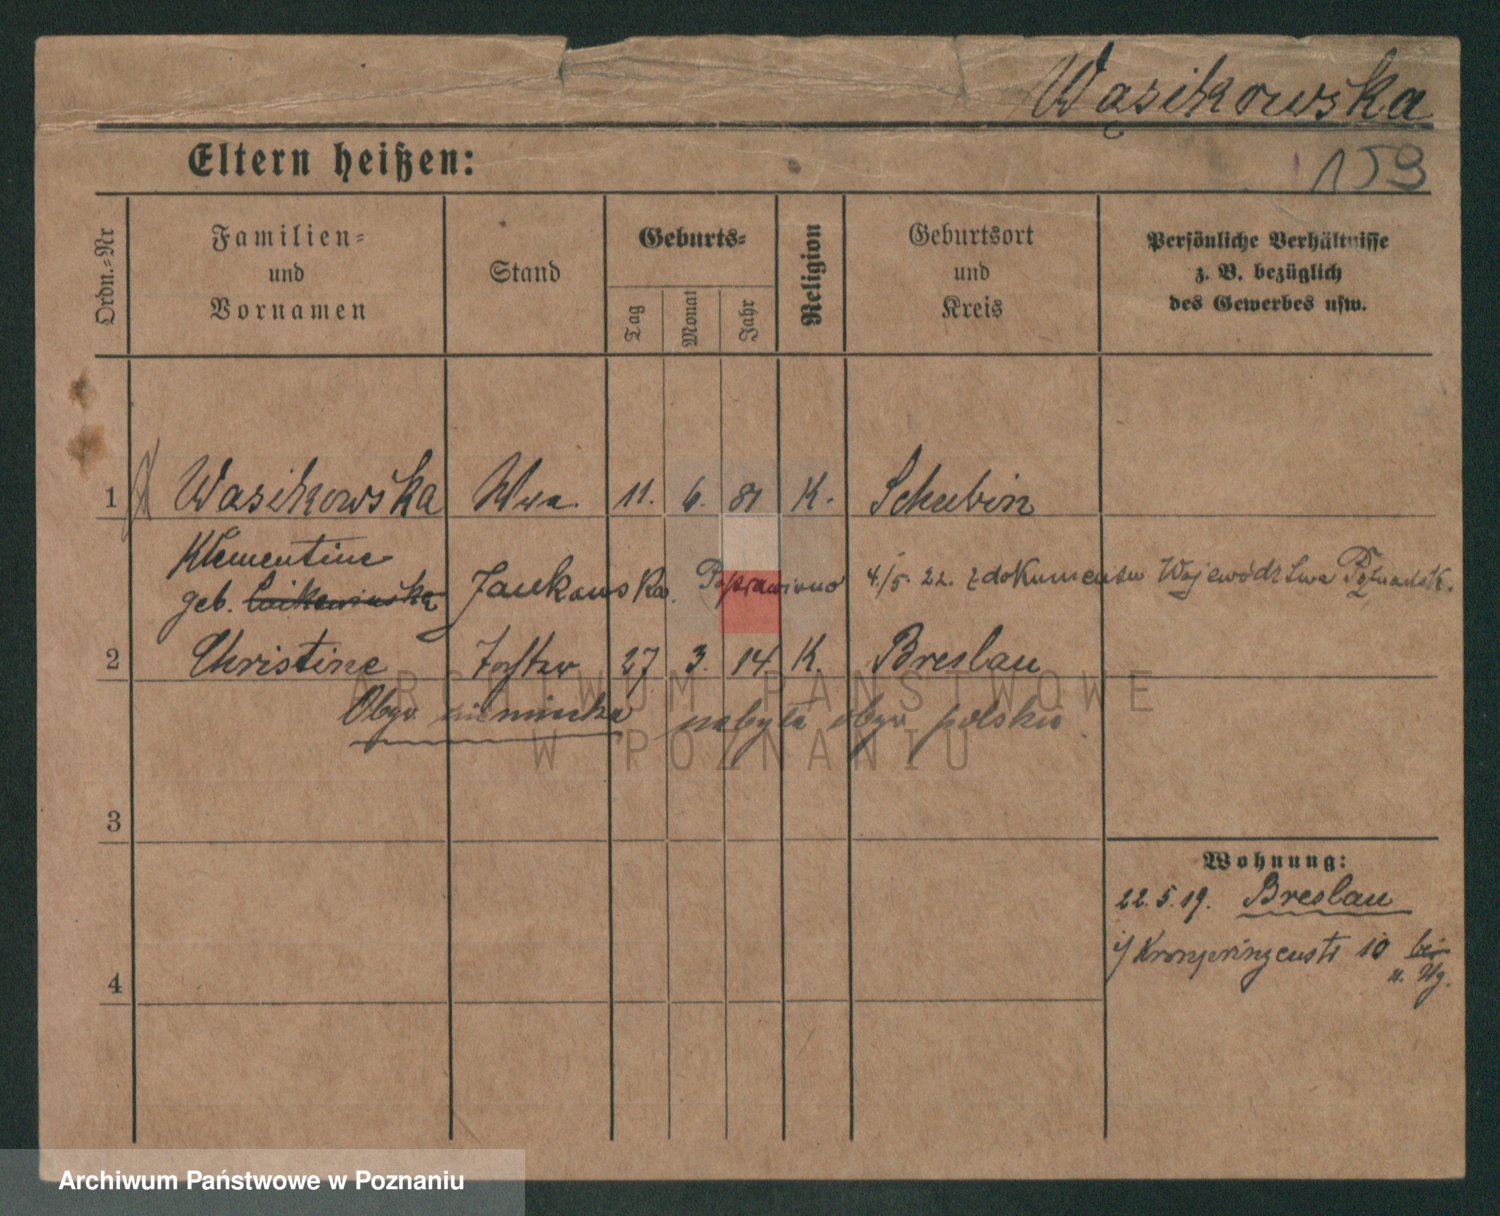 Wąsikowska
159
Eltern heißen:
Ordn.-Nr
Familien-
und
Vornamen
Stand
Geburts-
Tag
Monat
Jahr
Religion
Geburtsort
und
Kreis
Persönliche Verhältnisse
z. B. bezüglich
des Gewerbes usw.
1 Wasikowska Wwa. 11. 6. 81 K. Schubin
Klementine
geb. Jankowska. Poprawiono 4./5. 22. z dokumentu Województwa Poznańsk.
2 Christine Tochter 27 3. 14 K. Breslau
Obyw niemiecka nabyła obyw polskie
3
Wohnung:
22.5.19. Breslau
Kronprinzenstr 10 bei
4
u. Wg.
ARCHIWUM PAŃSTWOWE
W POZNANIU
Archiwum Państwowe w Poznaniu